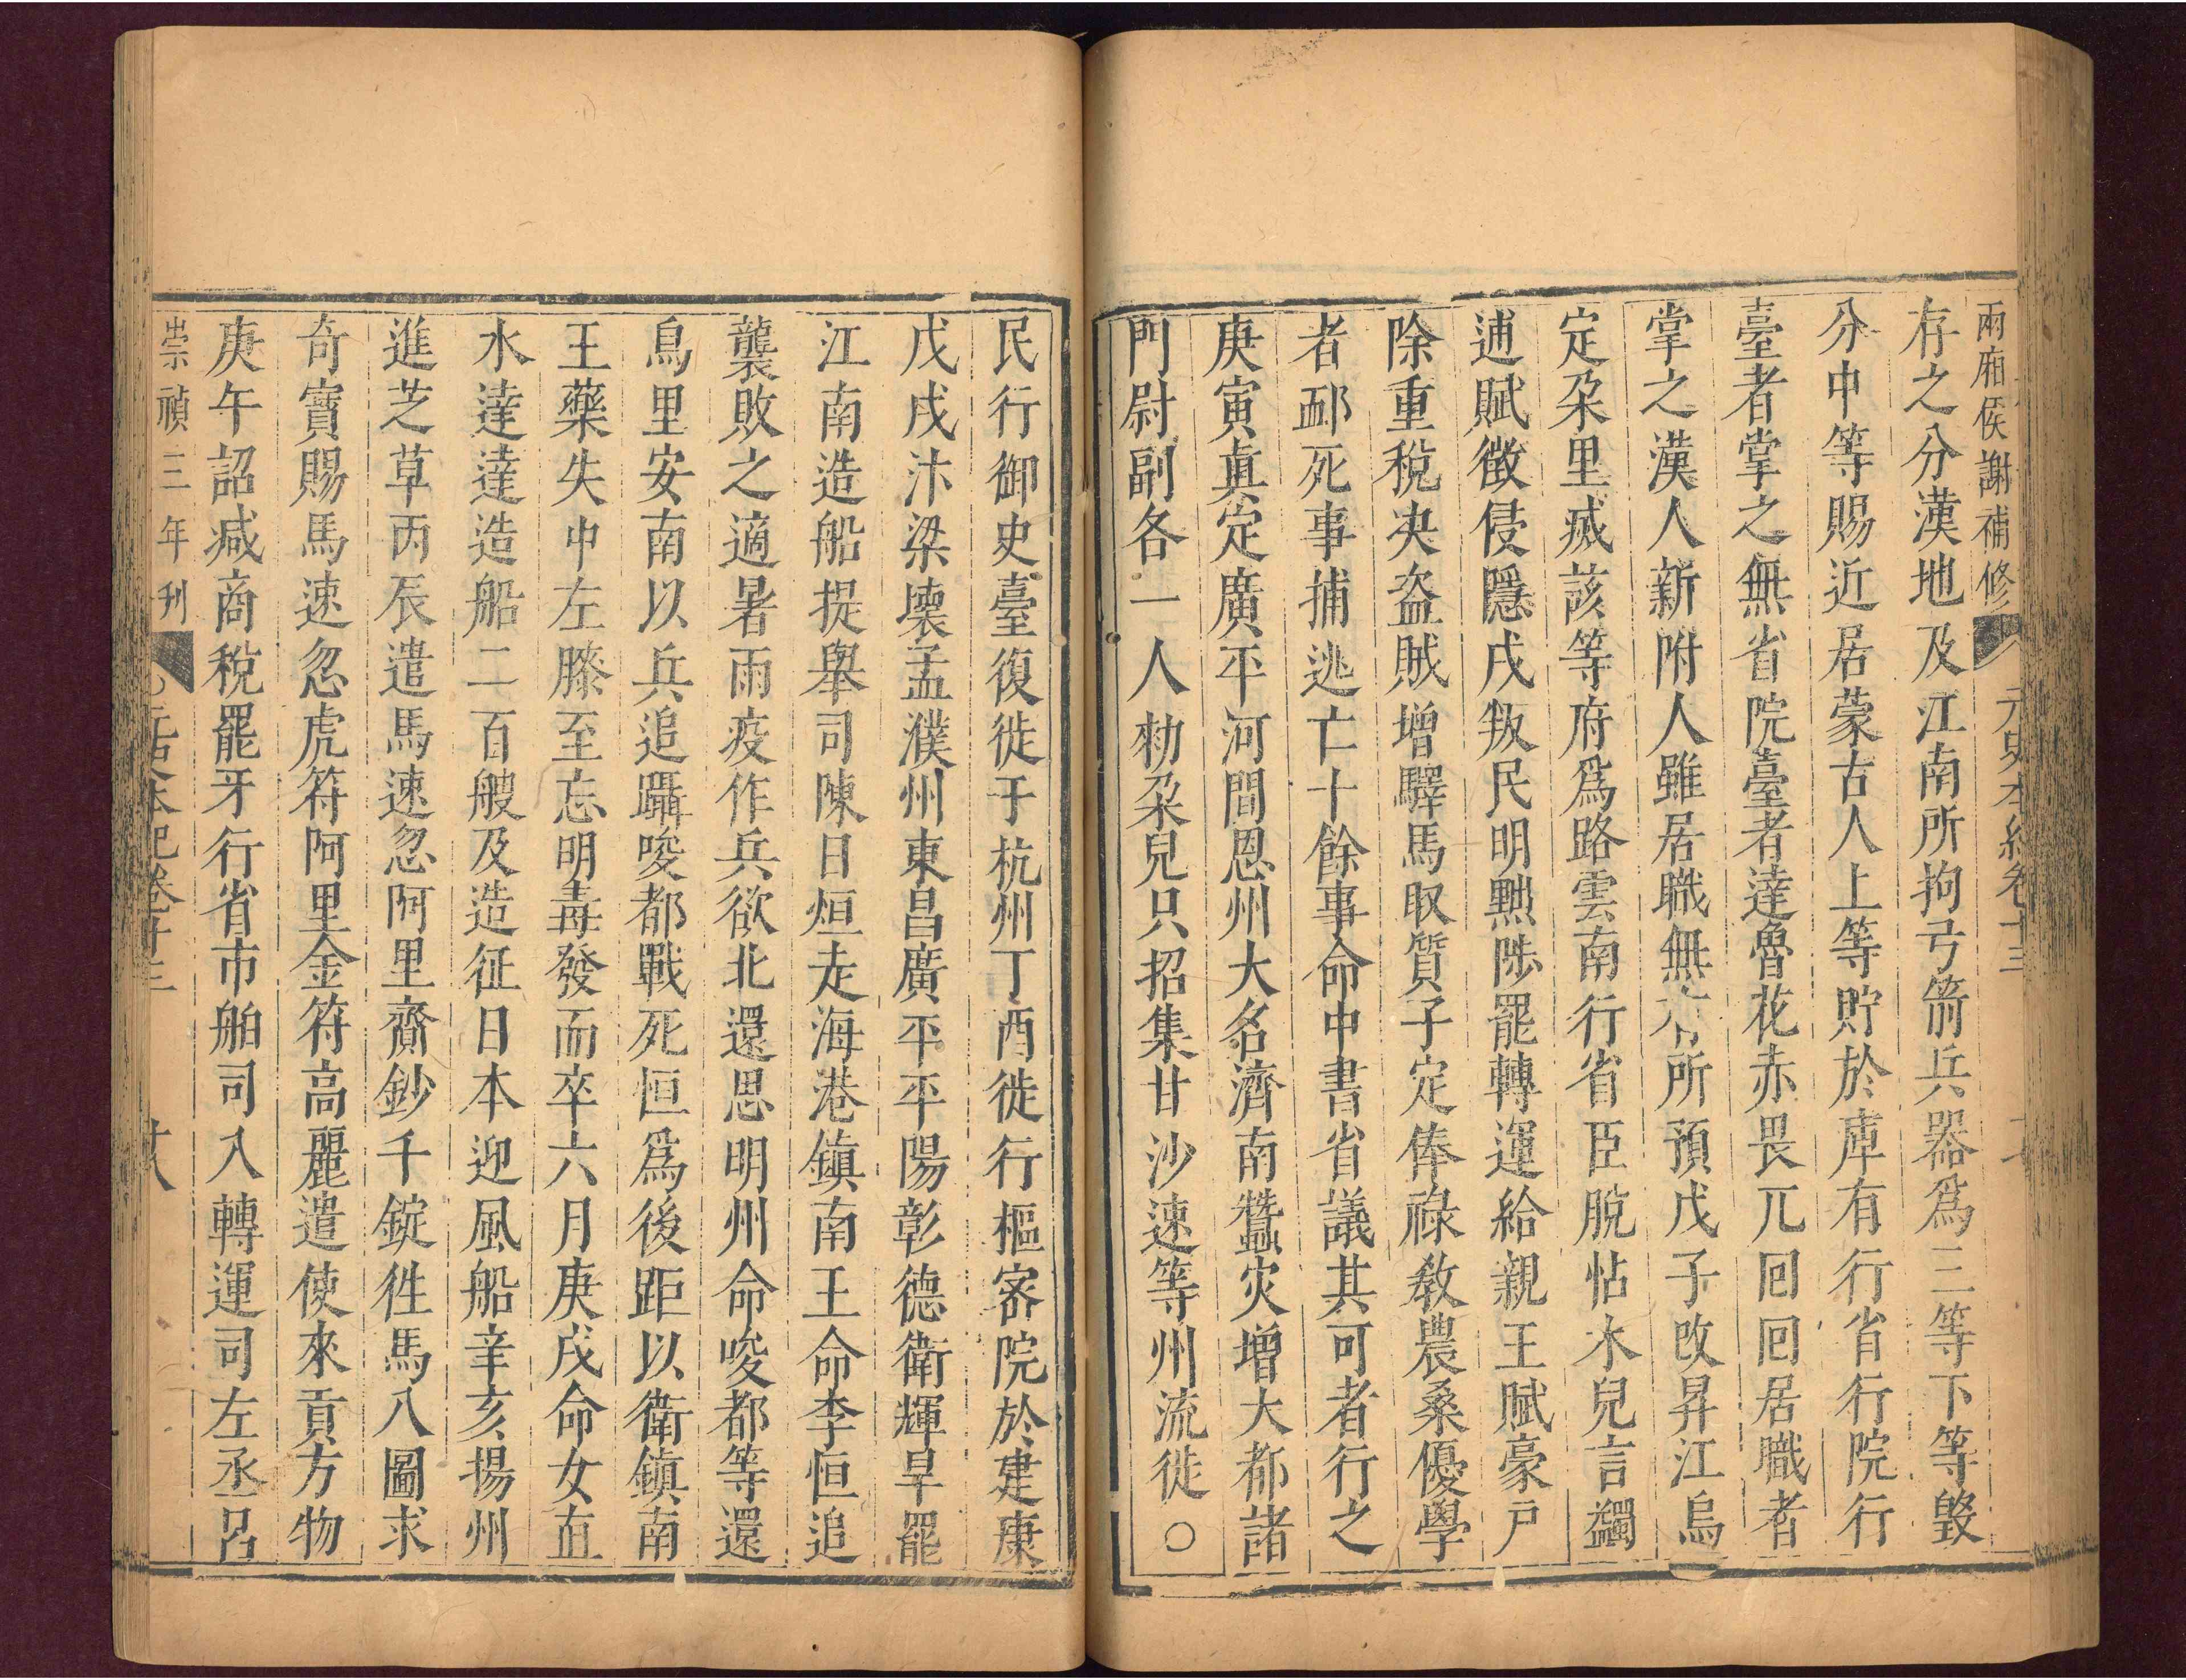 兩廂侯謝補修 元史本紀卷十三
存之分漢地及江南所拘弓箭兵器爲三等下等毀
分中等賜近居蒙古人上等貯於庫有行省行院行
臺者掌之無省院臺者達魯花赤畏兀回回居職者
掌之漢人新附人雖居職無有所預戊子改昇江烏
定朶里㓕該等府爲路雲南行省臣脫怗木兒言蠲
逋賦徵侵隱戍叛民明黜陟罷轉運給親王賦豪戶
除重稅决盗賊增驛馬取質子定俸祿敎農桑優學
者䘏死事捕逃亡十餘事命中書省議其可者行之
庚寅真定廣平河間恩州大名濟南蠶灾增大都諸
門尉副各一人勑朶兒只招集甘沙速等州流徙○
民行御史臺復徙于杭州丁酉徙行樞密院於建康
戊戌汴梁壞孟濮州東昌廣平平陽彰德衛輝旱罷
江南造船提舉司陳日烜走海港鎮南王命李恒追
襲敗之適暑雨疫作兵欲北還思明州命唆都等還
烏里安南以兵追躡唆都戰死恒爲後距以衛鎮南
王藥矢中左膝至忘明毒發而卒六月庚戌命女直
水達達造船二百艘及造征日本迎風船辛亥揚州
進芝草丙辰遣馬速忽阿里齎鈔千錠徃馬八圖求
奇寶賜馬速忽虎符阿里金符高麗遣使來貢方物
庚午詔减商稅罷牙行省市舶司入轉運司左丞呂
崇禎三年刊 元史本紀卷十三 廿八